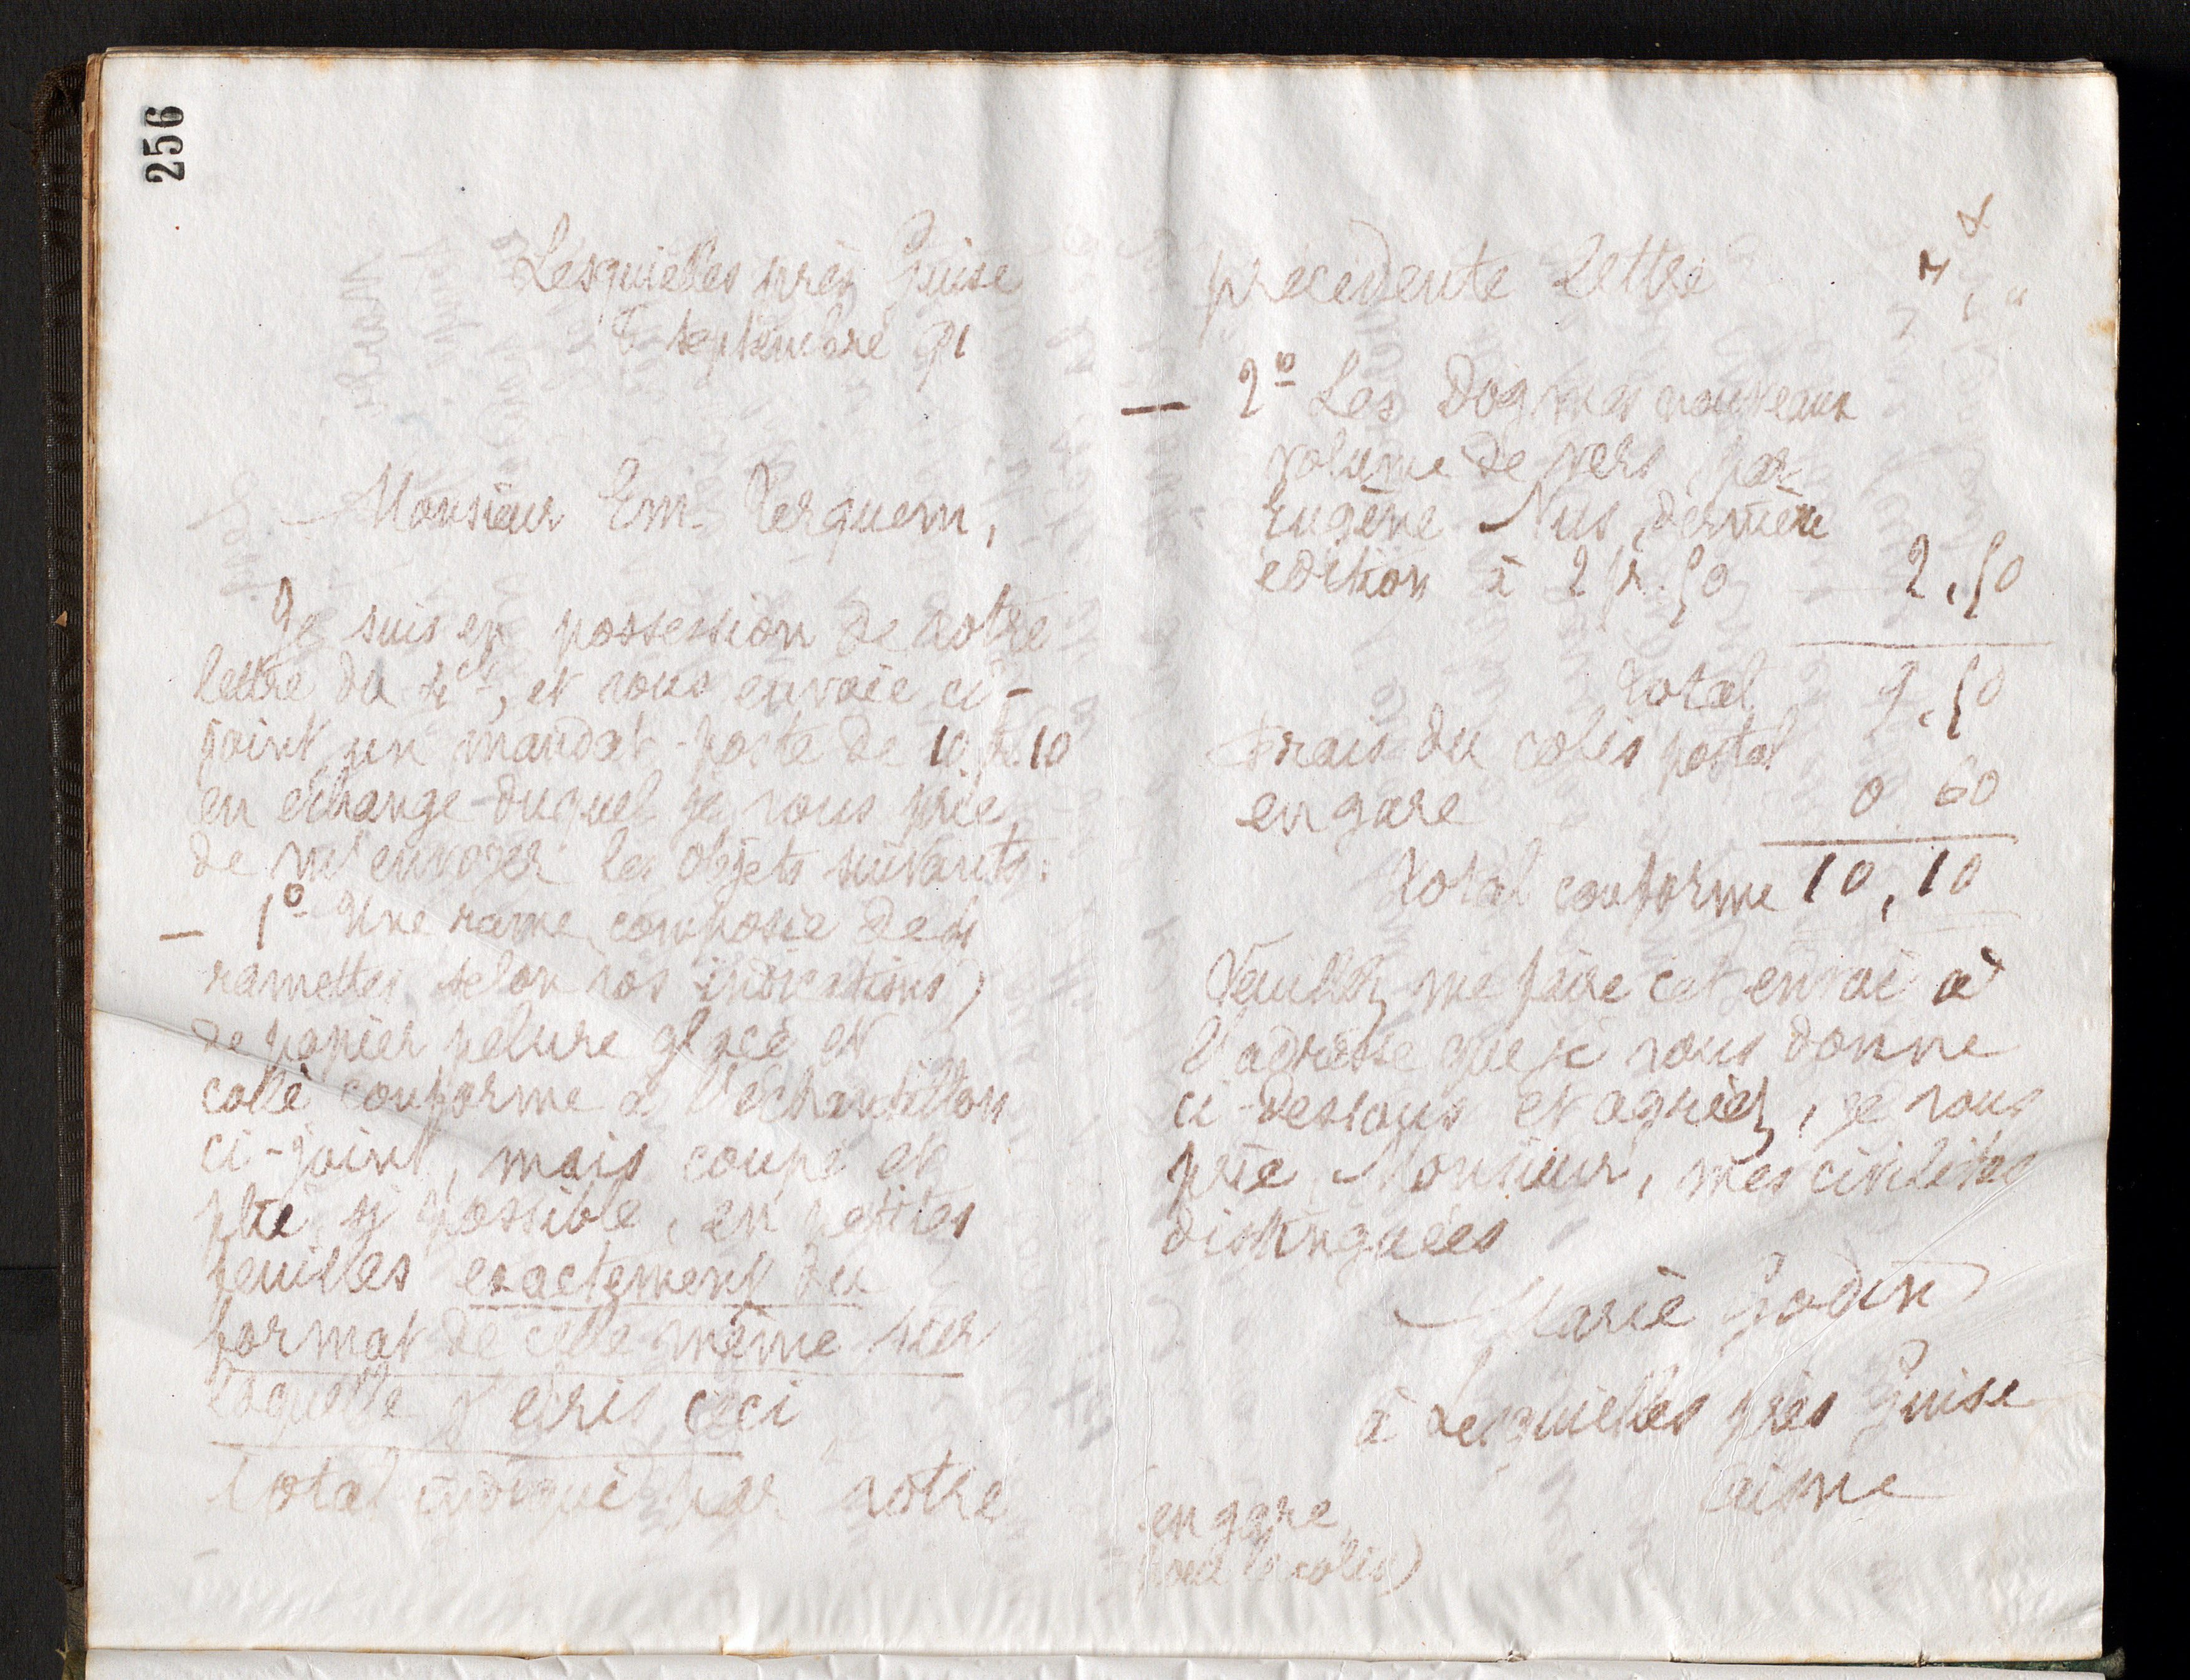 256
Lesquielles près Guise
5 septembre 91
Monsieur Em. Terquem,
Je suis en possession de votre
lettre du 4 ct, et vous envoie ci-
joint un mandat-poste de 10 fr. 10
en échange duquel je vous prie
de m'envoyer les objets suivants:
— 1º Une rame composée de 4
ramettes selon vos indications,
de papier pelure glacé et
collé conforme à l'échantillon
ci-joint, mais coupé et
plié, si possible, en petites
feuilles exactement du
format de celle même sur
laquelle j'écris ceci
Total indiqué par votre
précédente lettre 7, "
— 2º Les Dogmes nouveaux
volume de vers par
Eugène Nus, dernière
édition à 2 fr. 50 2,50
Total 9.50
Frais du colis postal
en gare 0 60
Total conforme 10,10
Veuillez me faire cet envoi à
l'adresse que je vous donne
ci-dessous et agréez, je vous
prie, Monsieur, mes civilités
distinguées
Marie Godin
à Lesquielles près Guise
Aisne
(en gare
pour le colis)